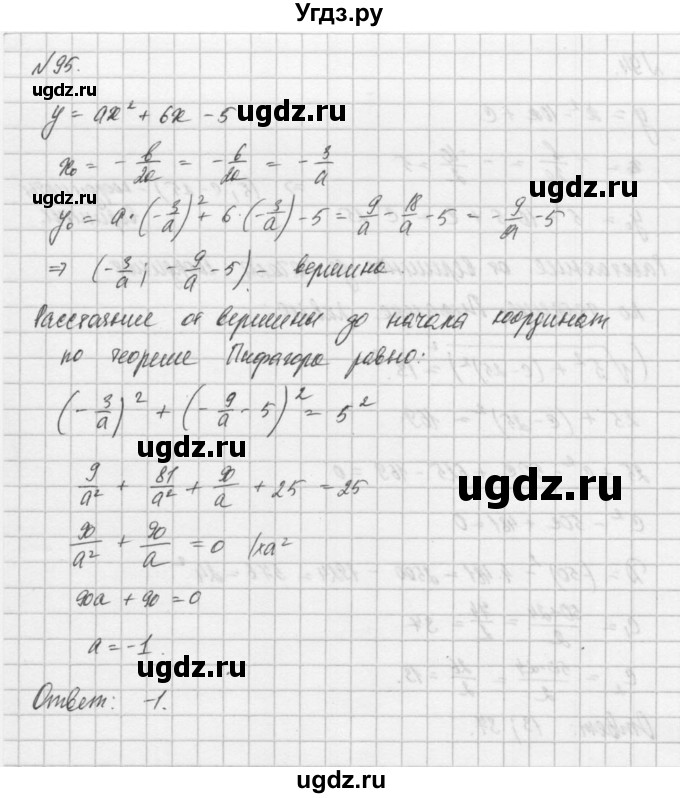 Угдз.ру
№95.
y = ax² + 6x - 5
ugdz.ru
ugdz.ru
x₀ = - b/2a = - 6/2a = - 3/a
ugdz.ru
ugdz.ru
y₀ = a·(-3/a)² + 6·(-3/a) - 5 = 9/a - 18/a - 5 = - 9/a - 5
⇒ (-3/a; -9/a - 5) - вершина
Расстояние от вершины до начала координат
ugdz.ru
ugdz.ru
по теореме Пифагора равно:
(-3/a)² + (-9/a - 5)² = 5²
ugdz.ru
9/a² + 81/a² + 90/a + 25 = 25
ugdz.ru
90/a² + 90/a = 0 |×a²
ugdz.ru
90a + 90 = 0
a = -1.
ugdz.ru
Ответ: -1.
ugdz.ru
ugdz.ru